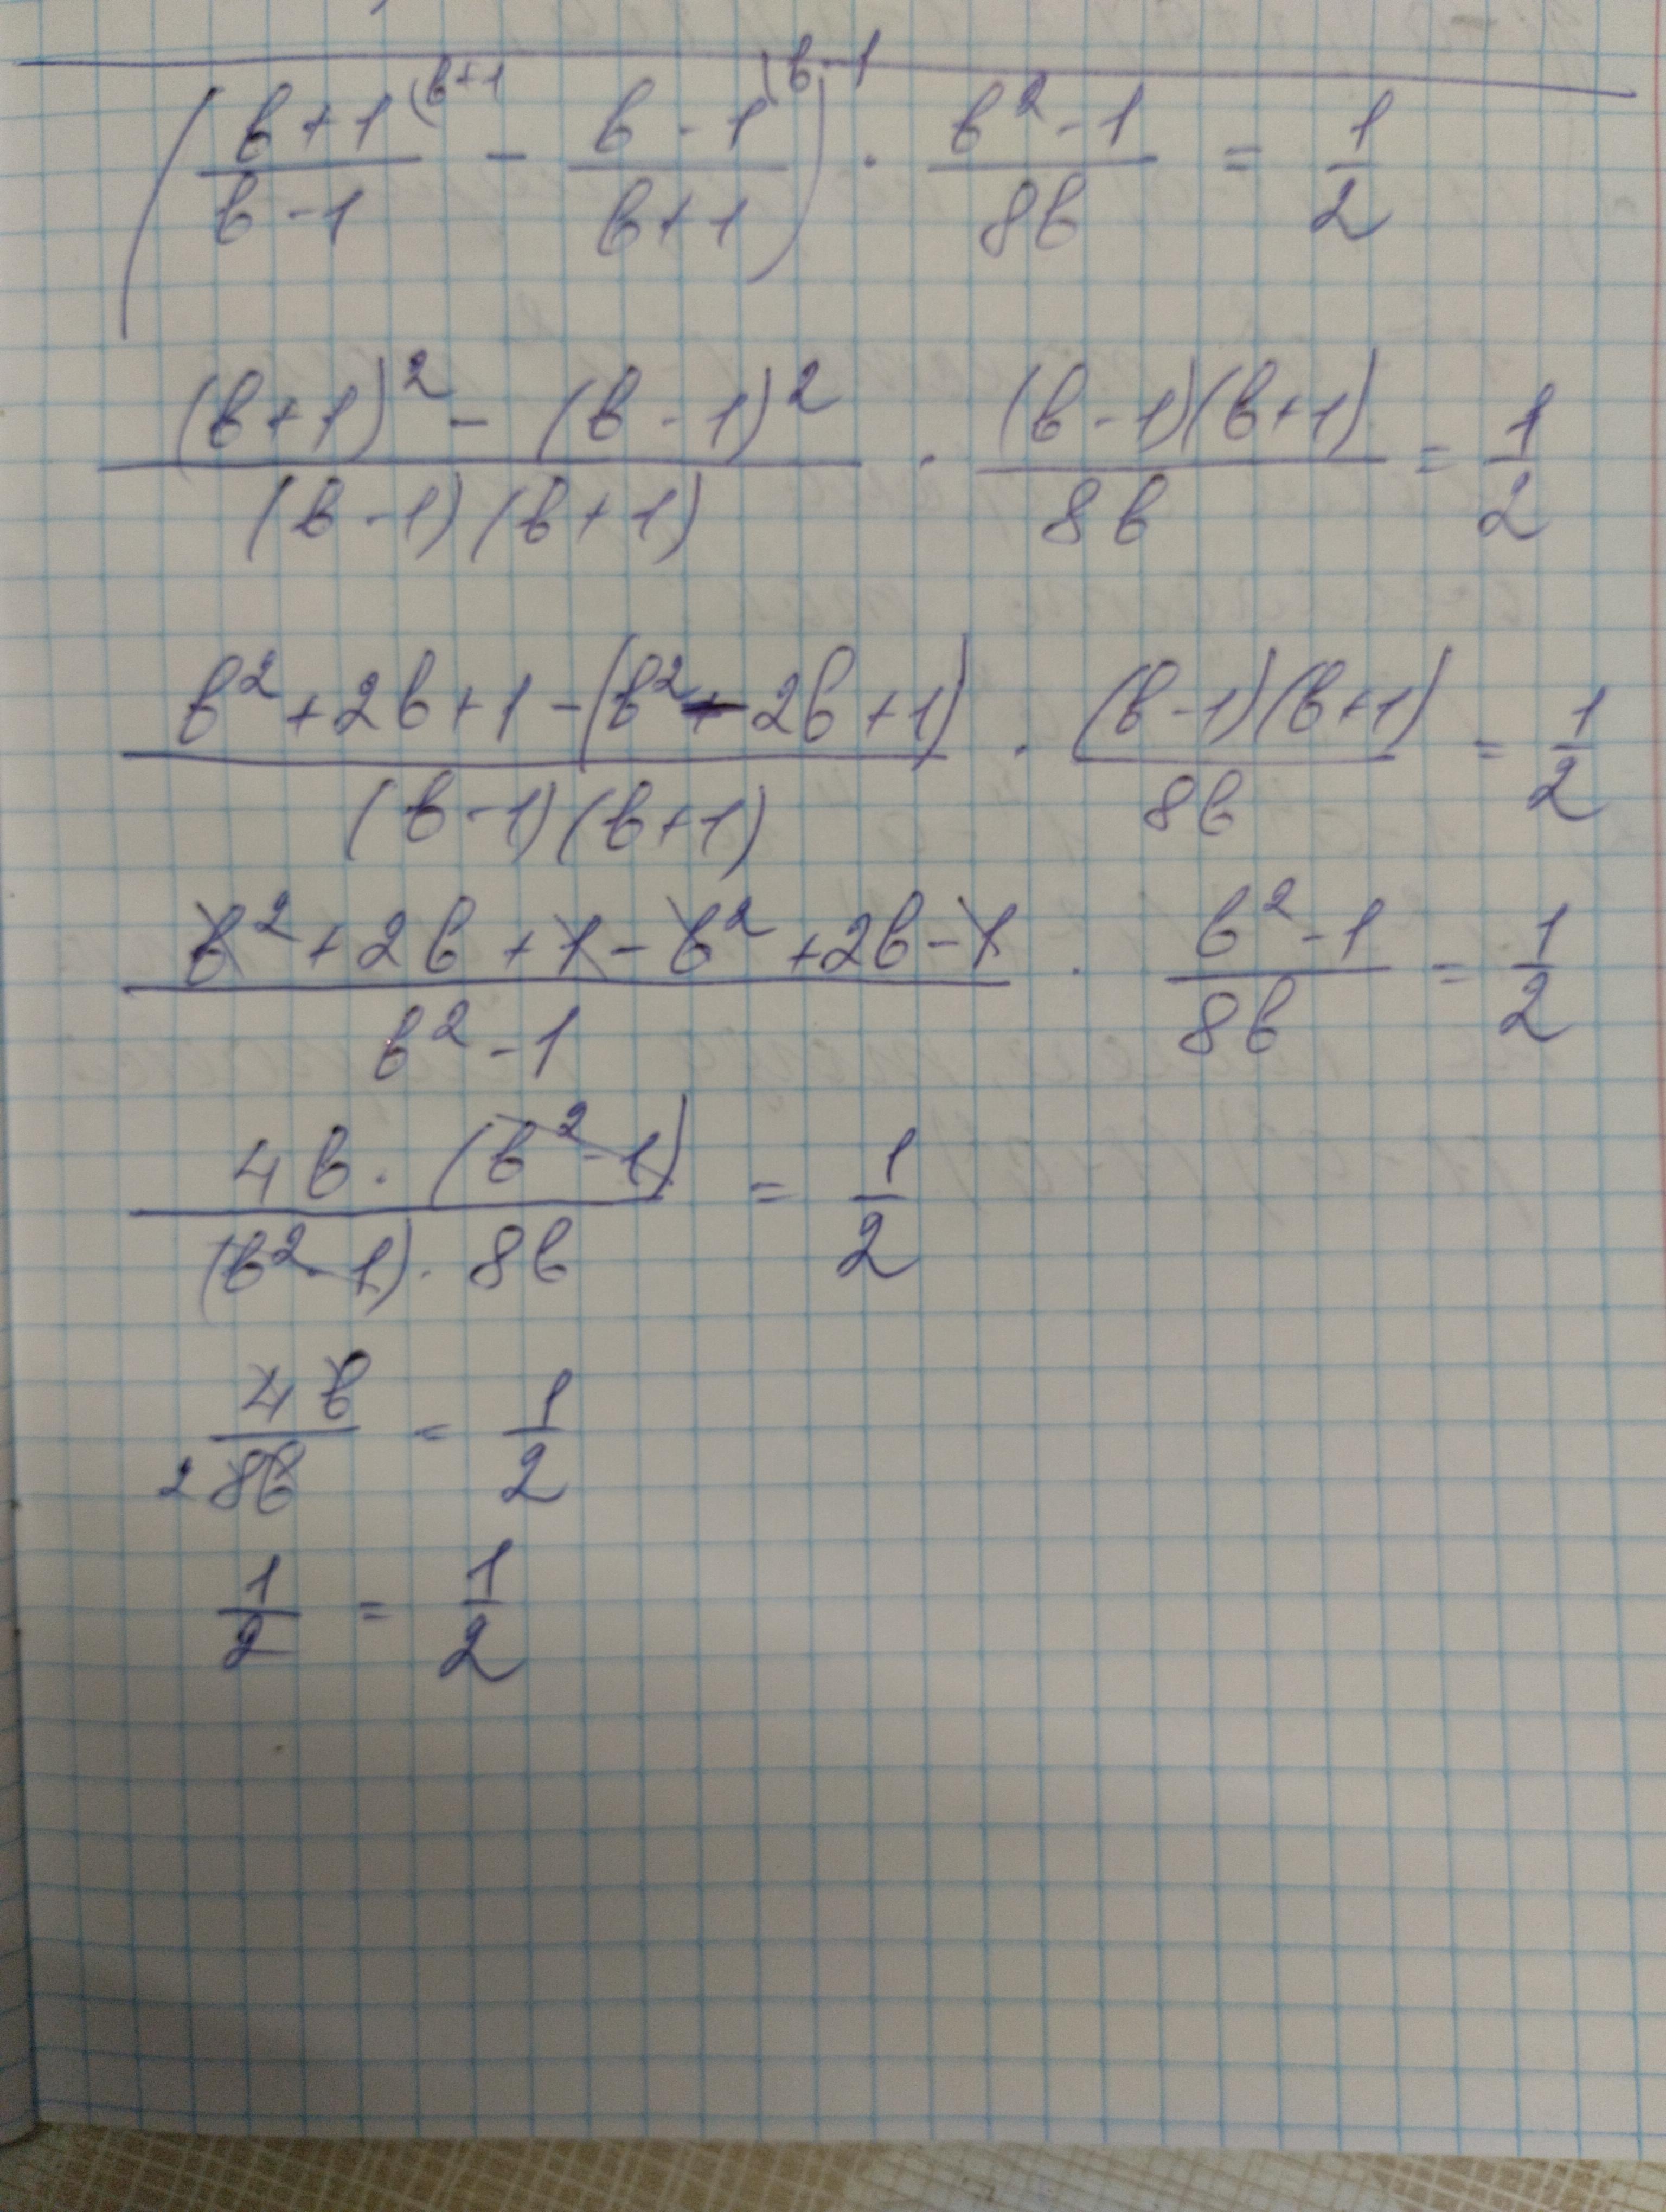 ((b+1)/(b-1) (b+1 - (b-1)/(b+1) (b-1) · (b²-1)/(8b) = 1/2
((b+1)² - (b-1)²)/((b-1)(b+1)) · ((b-1)(b+1))/(8b) = 1/2
(b²+2b+1-(b²-2b+1))/((b-1)(b+1)) · ((b-1)(b+1))/(8b) = 1/2
(b²+2b+1-b²+2b-1)/(b²-1) · (b²-1)/(8b) = 1/2
(4b·(b²-1))/((b²-1)·8b) = 1/2
4b/(2 8b) = 1/2
1/2 = 1/2